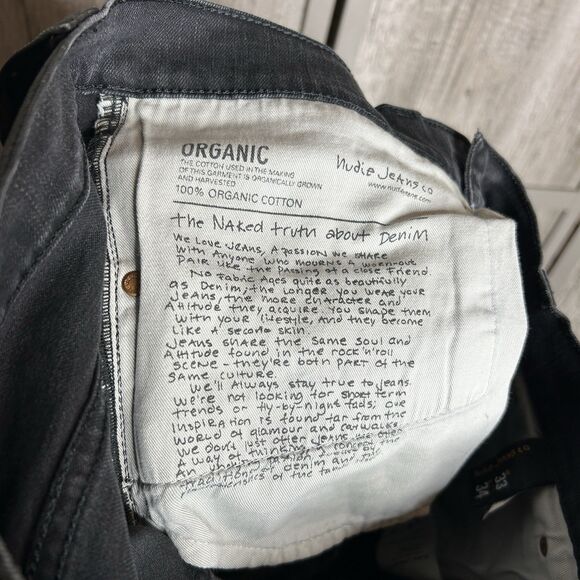 ORGANIC
THE COTTON USED IN THE MAKING
OF THIS GARMENT IS ORGANICALLY GROWN
AND HARVESTED
100% ORGANIC COTTON
nudie Jeans co
www.nudiejeans.com
the Naked truth about Denim
We Love Jeans, A passion we share
with Anyone who mourns a worn-out
pair like the passing of a close friend.
No fabric ages quite as beautifully
as Denim, the longer you wear your
Jeans, the more character and
Attitude they acquire. You shape them
with your lifestyle, And they become
like a second skin.
Jeans share the same soul and
Attitude found in the rock'n'roll
scene - they're both part of the
same culture.
We'll Always stay true to jeans
We're not looking for short term
trends or fly-by-night fads; our
Inspiration is found far from the
World of glamour and catwalks
We don't just offer Jeans, we offer
A way of thinking, a concept
An
tradition of denim and the
characteristics of the
33
34